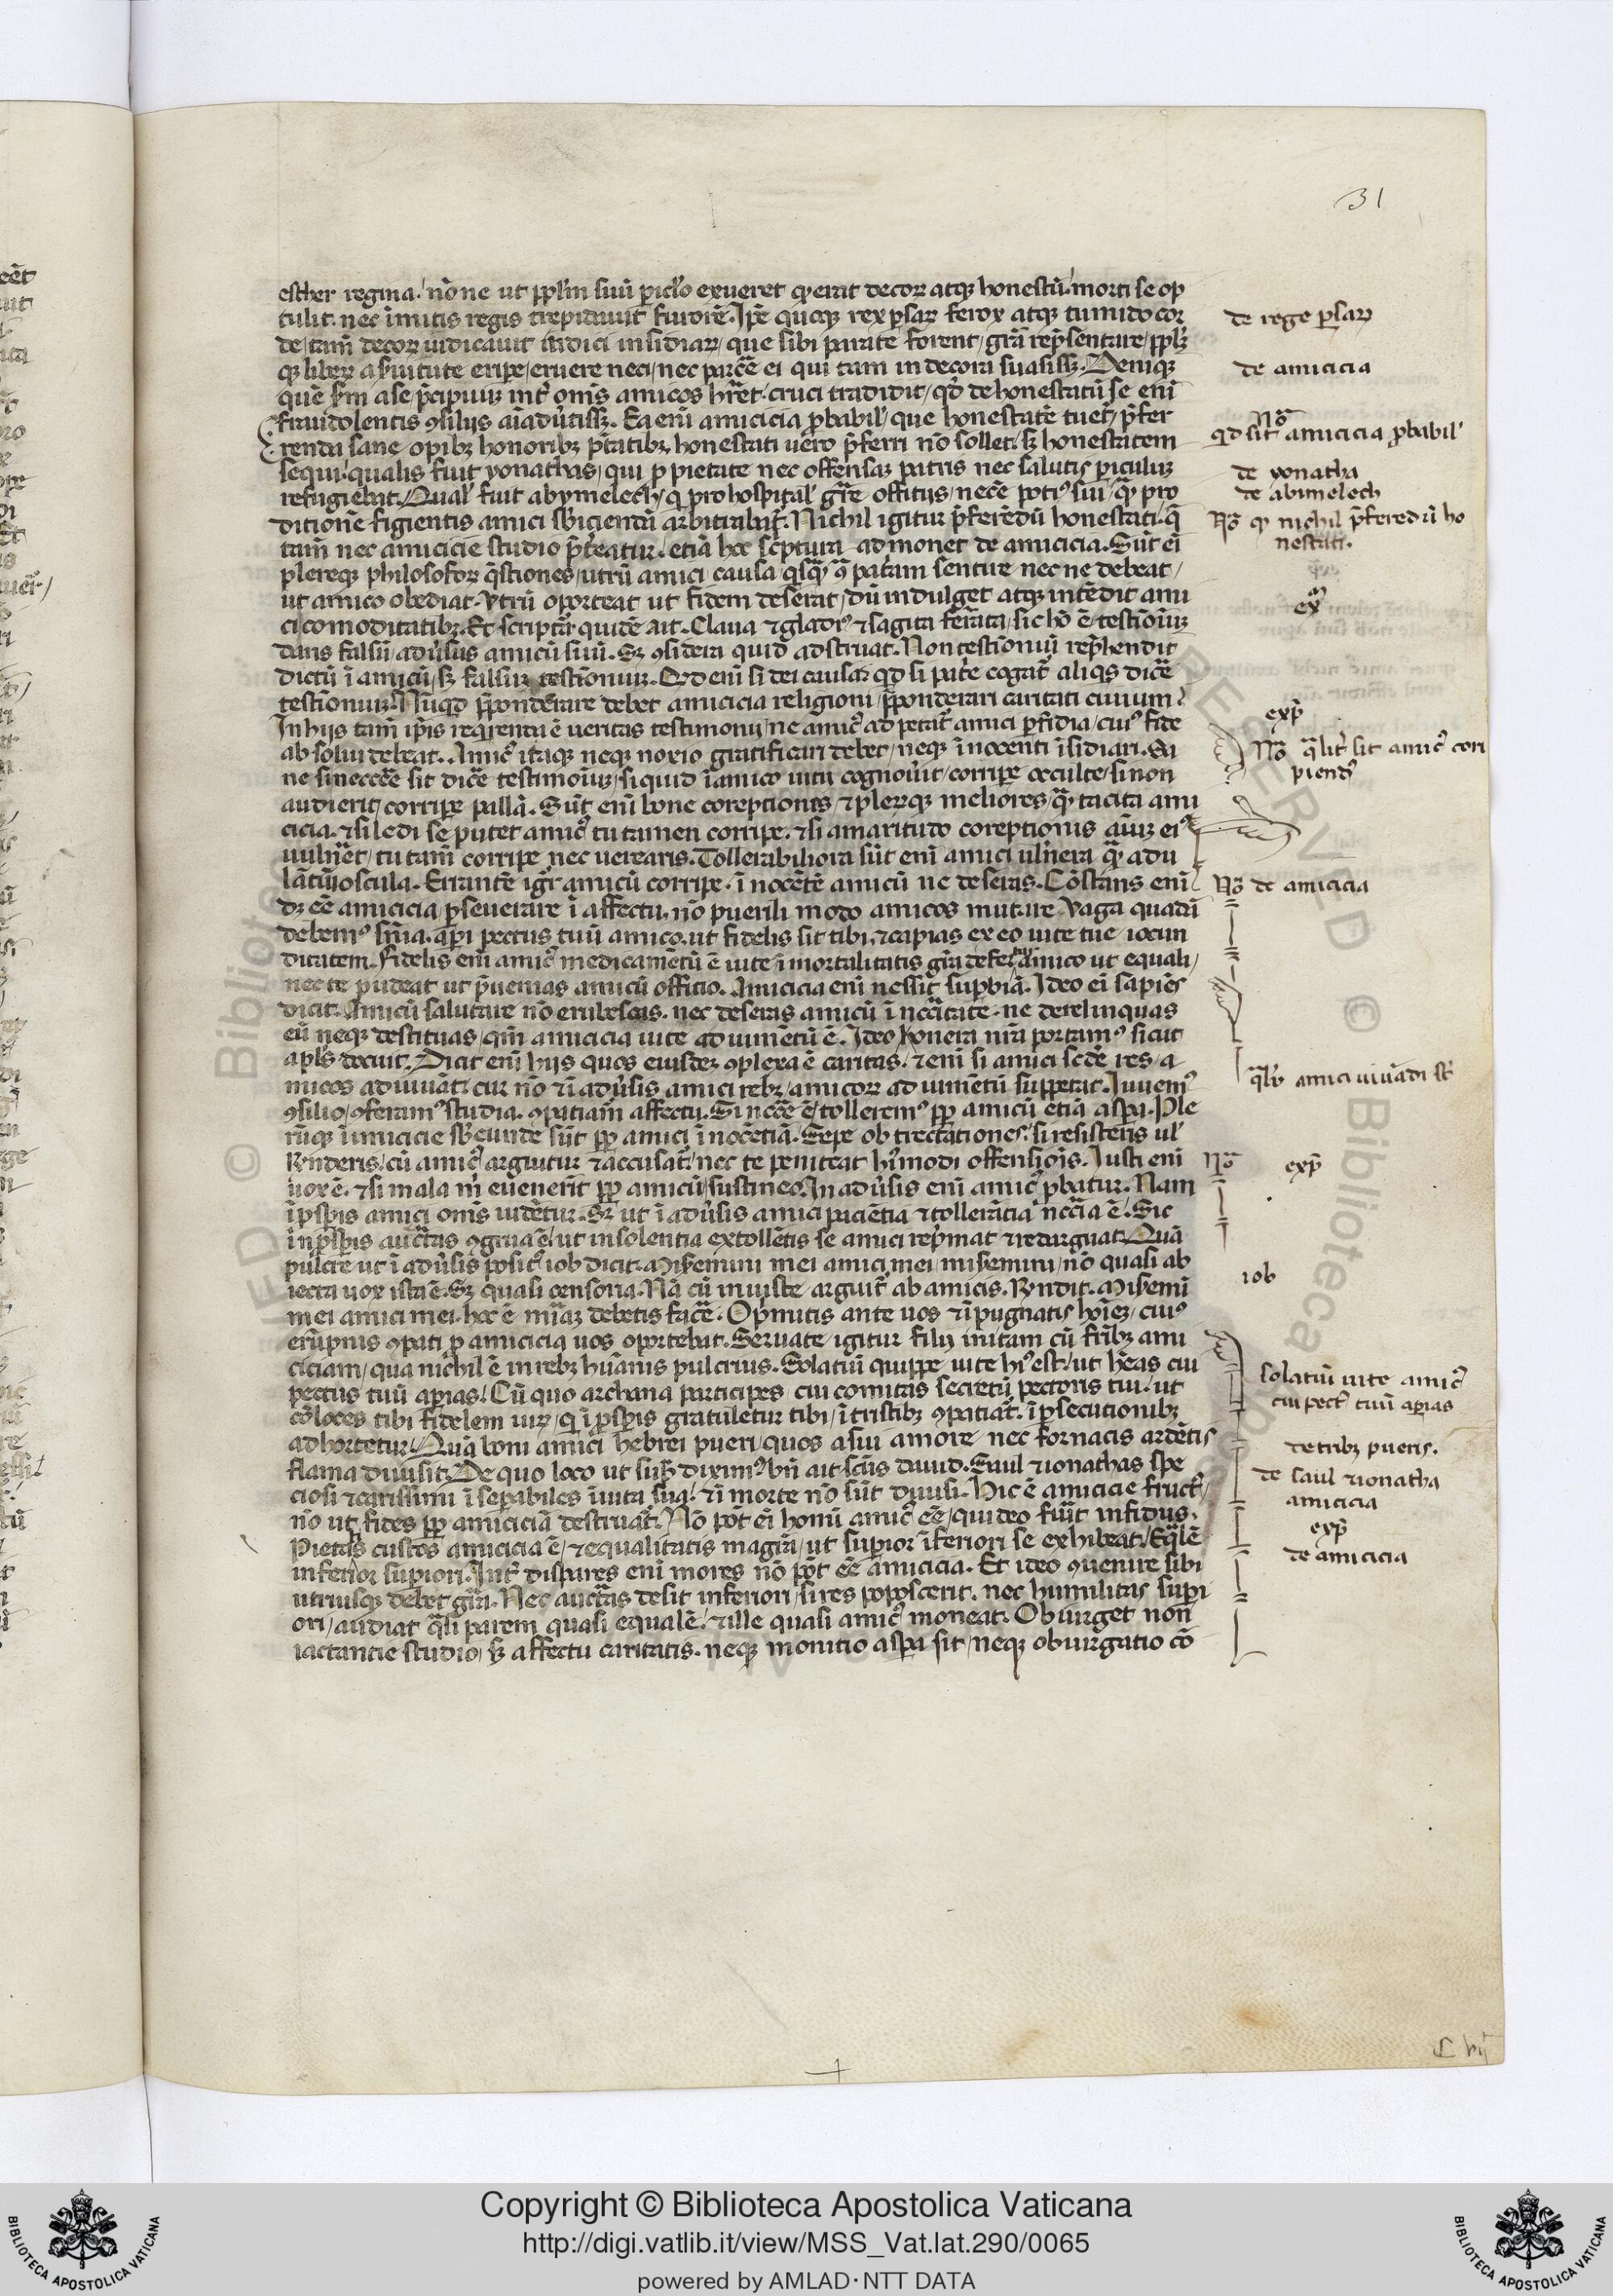 31
esther regina / no̅ne ut pplm suu̅ piclo exueret qͥ erat decoꝝ atqꝫ honestu̅ / morti se op
tulit. nec i̅mitis regis trepidauit furore̅. Ip̅e quoqꝫ rex ꝑsaꝝ ferox atqꝫ tumido cor
de / tam̅ decoꝝ iudicauit indici insidiaꝝ / que sibi parate forent / gra̅ rep̅sentare / pplꝫ
qꝫ libeꝝ a s̅uitute eriꝑe / eruere neci / nec parce̅ ei qui tam indecora suasissꝫ. Deniqꝫ
que̅ sm̅ a se p̅cipuuꝫ int̅ om̅s amicos hr̅et. cruci tradidit / qd̅ dehonestatu̅ se eni̅
fraudolentis ꝯsilijs ai̅adu̅tissꝫ. Ea eni̅ amicicia ꝓbabil̕ / que honestate̅ tuet̅ / p̅fer
renda sane opibꝫ honoribꝫ p̅tatibꝫ. honestati uero p̅ferri no̅ sollet / sꝫ honestatem
sequi / qualis fuit yonathas / qui ꝑ pietate nec offensaꝫ patris nec salutis ꝑiculuꝫ
refugiebat. Qual̕ fuit abymelech / q̅ pro hospital̕ gr̅e offitijs / nece̅ potiꝰ sui / q̅ꝫ pro
ditione̅ figientis amici sb̅iciendu̅ arbitrabat̅. Nichil igitur p̅fere̅du̅ honestati. q̅
tam̅ nec amicicie studio p̅t̅eatur. etia̅ hec sc̅ptura admonet de amicicia. Su̅t ei̅
plereqꝫ philosofoꝝ q̅stiones / utru̅ amici causa q̅sq̅ꝫ ꝯ̅ pat̅am sentire nec ne debeat /
ut amico obediat. Vtru̅ oporteat ut fidem deserat / du̅ indulget atqꝫ inte̅dit ami
ci comoditatibꝫ. Et scriptur̅ quide̅ ait. Claua ⁊ gladiꝰ ⁊ sagita fer̅ata / sic ho̅ e̅ testi̅o̅iuꝫ
dans falsu̅ / adu̅sus amicu̅ suu̅. Sꝫ ꝯsidera quid adstruat. Non testi̅oniu̅ rep̅hendit
dictu̅ i̅ amicu̅ / sꝫ falsuꝫ testi̅oniuꝫ. Qd̅ eni̅ si dei causa / qd̅ si pat̅e cogat̅ aliq̅s dice̅
testi̅oniuꝫ? Nu̅qͥd p̅ponderare debet amicicia religioni / p̅ponderari caritati ciuium?
In hijs tam̅ ip̅is req̅renda e̅ ueritas testimonij / ne amicꝰ ad petat̅ amici ꝑfidia / cuiꝰ fide
absolui debeat. Amicꝰ itaqꝫ neqꝫ noxio gratificari debet / neqꝫ i̅nocenti i̅sidiari. Sa
ne si necce̅e sit dice̅ testimo̅iuꝫ / si quid i̅ amico uitij cognou̅it / corriꝑe occulte / si non
audierit / corriꝑe palla̅. Su̅t eni̅ bone coreptiones / ⁊ pleruqꝫ meliores / q̅ꝫ tacita ami
cicia. ⁊ si ledi se putet amicꝰ / tu tamen corriꝑe. ⁊ si amaritudo coreptionis ai̅uꝫ eiꝰ
uuln̅et / tu tam̅ corriꝑe nec uerearis. Tollerabiliora su̅t eni̅ amici uln̅era q̅ꝫ adu
la̅tiu̅ oscula. Errante̅ igr̅ amicu̅ corriꝑe. i̅noce̅te̅ amicu̅ ne deseras. Co̅stans eni̅
dꝫ ee̅ amicicia / ꝑseuerare i̅ affectu / no̅ puerili modo amicos mutare / vaga quada̅
debemꝰ sn̅ia. aꝑi pectus tuu̅ amico. ut fidelis sit tibi. ⁊ capias ex eo uite tue iocun
ditatem. Fidelis eni̅ amicꝰ medicame̅tu̅ e̅ uite i̅mortalitatis gr̅a defer amico ut equali /
nec te pudeat ut p̅uenias amicu̅ offitio. Amicicia eni̅ nessit suꝑbia̅. Ideo ei̅ sapie̅s
dicit. Amicu̅ salutare no̅ erubescas. nec deseras amicu̅ i̅ ncc̅itate. ne derelinquas
eu̅ neqꝫ destituas / qm̅ amicicia uite adiume̅tu̅ e̅. Ideo honera nr̅a portamꝰ sicut
apl̕s docuit. Dicit eni̅ hijs quos eiusdeꝫ ꝯplexa e̅ caritas. ⁊eni̅ si amici scd̅e res / a
micos adiuua̅t / cur no̅ ⁊ i̅ adu̅sis amici rebꝫ / amicoꝝ adiume̅tu̅ suppetat. Iuuemꝰ
ꝯsilio / ꝯferamꝰ studia. ꝯpatiam̅ affectu. Si ncc̅e e̅ / tolleremꝰ pp̅ amicu̅ etia̅ asꝑa. Ple
ru̅qꝫ i̅micicie sb̅eunde su̅t pp̅ amici i̅noce̅tia̅. Sepe obtrectationes / si resisteris ul̕
Rn̅deris / cu̅ amicꝰ arguitur ⁊ accusat̅ / nec te peniteat hꝰmodi offensio̅is. Iusti eni̅
uox e̅. ⁊ si mala m̅ euenerit pp̅ amicu̅ / sustineo. In adu̅sis eni̅ amicꝰ ꝓbatur. Nam
i̅ ꝓsꝑis amici om̅s uide̅tur. Sꝫ ut i̅ adu̅sis amici pacie̅tia ⁊ tollera̅tia ncc̅ia e̅. Sic
in ꝓsꝑis auctoritas ꝯgrua e̅ / ut insolentia extolle̅tis se amici rep̅mat ⁊ redarguat. Qua̅
pulcre ut i̅ adu̅sis positꝰ iob dicit. Mis̅emini mei amici mei / mis̅emini / no̅ quasi ab
iecta uox ista e̅. Sꝫ quasi censoria. Na̅ cu̅ iniuste arguit̅ ab amicis. Rn̅dit. Mis̅emi̅
mei amici mei. hoc e̅ mi̅aꝫ debetis face̅. Op̅mitis ante uos ⁊ i̅pugnatis ho̅ieꝫ / cuiꝰ
eru̅pnis ꝯpati ꝑ amicicia uos oportebat. Seruate igitur filij initam cu̅ fr̅ibꝫ ami
ciciam / qua nichil e̅ in rebꝫ hu̅anis pulcrius. Solatiu̅ quippe uite hꝰ est / ut h̅eas cui
pectus tuu̅ aꝑias / Cu̅ quo archana participes / cui comitas secretu̅ pectoris tui / ut
co̅loces tibi fidelem uiꝝ / q̅ i̅ ꝓsꝑis gratuletur tibi / i̅ tristibꝫ ꝯpatiat̅. i̅ ꝑsecutionibꝫ
adhortetur. Qua̅ boni amici hebrei pueri / quos a sui amore nec fornacis arde̅tis
flama diuisit. De quo loco ut sup̅ diximꝰ bn̅ ait sc̅us dauid. Saul ⁊ ionathas spe
ciosi ⁊ carissimi i̅sepabiles i̅ uita sua. ⁊ i̅ morte no̅ su̅t diuisi. Hic e̅ amicicie fructꝰ /
no̅ ut fides pp̅ amicicia̅ destruat̅. No̅ po̅t ei̅ homi̅ amicꝰ ee̅ / qui deo fu̅it infidus.
Pietas custos amicicia e̅ / ⁊ equalitatis magr̅a / ut suꝑior i̅feriori se exhibeat / Eq̅le̅
inferior suꝑiori. Int̅ dispares eni̅ mores no̅ po̅t ee̅ amicicia. Et ideo ꝯuenire sibi
utriusqꝫ debet gr̅a. Nec auctoritas desit inferiori / si res poposcerit. nec humilitas suꝑi
ori / audiat q̅si parem quasi equale̅ / ⁊ ille quasi amicꝰ moneat. Obiurget non
iactantie studio / sꝫ affectu caritatis. neqꝫ monitio asꝑa sit / neqꝫ obiurgatio co̅
de rege ꝑsaꝝ
de amicicia
No̅
qd̅ sit amicicia ꝓbabil̕
de yonatha
de abimelech
No̅ qͥ nichil p̅fere̅du̅ ho
nestati.
ex̅
exp̅
No̅ q̅lit̅ sit amicꝰ cori
piendꝰ
No̅ de amicicia
q̅lr̅ amici iuua̅di st̅
No̅ exp̅
iob
solatiu̅ uite amicꝰ
cui pectꝰ tuu̅ aꝑias
de tribꝫ pueris.
de saul ⁊ ionatha
amicicia
exp̅
de amicicia
c vij
Copyright © Biblioteca Apostolica Vaticana
http://digi.vatlib.it/view/MSS_Vat.lat.290/0065
powered by AMLAD · NTT DATA
BIBLIOTECA APOSTOLICA VATICANA
BIBLIOTECA APOSTOLICA VATICANA